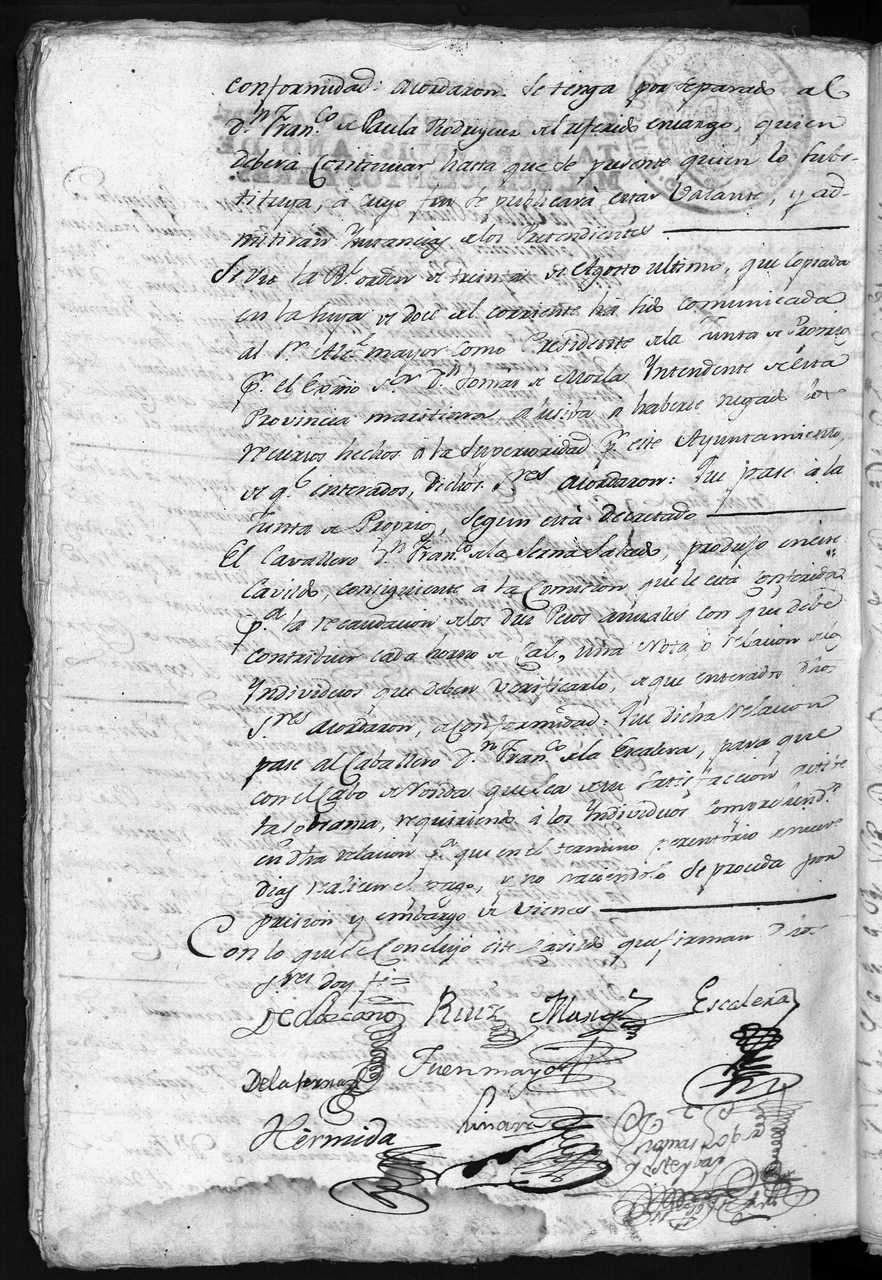 conformidad: acordaron se tenga por separado al
Dn. Franco. de Paula Rodriguez del referido encargo, quien
debera Continuar hasta que se presente quien lo subs-
tituya, a cuyo fin se publicará estar Vacante, y ad-
mitiran Ynstancias de los Pretendientes
Se vio la Rl. orden de treinta de Agosto ultimo, que copiada
en la suya de doce del corriente ha sido comunicada
al Sr. Alce. mayor como Presidente de la Junta de Proprios
pr. el Exmo Sor. Dn. Tomas de Morla Yntendente de esta
Provincia maritima alusiba a haberse negado los
recursos hechos a la Superioridad pr. este Ayuntamiento,
de qe. enterados, dichos Sres acordaron: Que pase à la
Junta de Proprios, segun está decretado
El Cavallero Dn. Franco. de la Serna Salado, produjo en este
Cavildo, consiguiente a la Comision que le esta conferida
pa. la recaudacion de los dos Pesos anuales con que debe
contribuir cada horno de Cal, una Nota o relacion de
Yndividuos que deben Verificarlo, de que enterados dhos
Sres acordaron, de conformidad: Que dicha relacion
pase al Caballero Dn. Franco. de la Escalera, para que
con el Cabo de Ronda que sea de su satisfacción
requiriendo á los Yndividuos comprehend.s
en dha relacion pa. que en el termino perentorio de nueve
Dias realisen el pago, y no haciendolo se proceda por
prision y embargo de vienes
Con lo que se Concluyó este Cavildo que firman dhos
Sres doy fe
De Lozcano Ruiz Escalera
De la Serna Fuenmayor
Hermida Linares Thomas Lopez
y Estevan